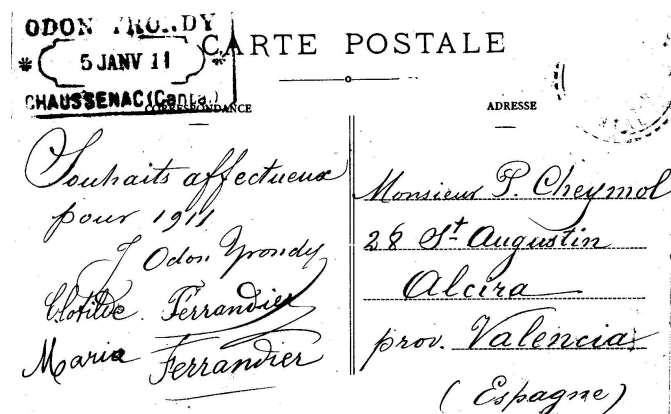 ODON YRONDY
5 JANV 11
CHAUSSENAC (Cantal)
CARTE POSTALE
CORRESPONDANCE
ADRESSE
Souhaits affectueux
pour 1911
J Odon Yrondy
Clotilde Ferrandier
Maria Ferrandier
Monsieur P. Cheymol
28 St Augustin
Alcira
prov. Valencia
(Espagne)